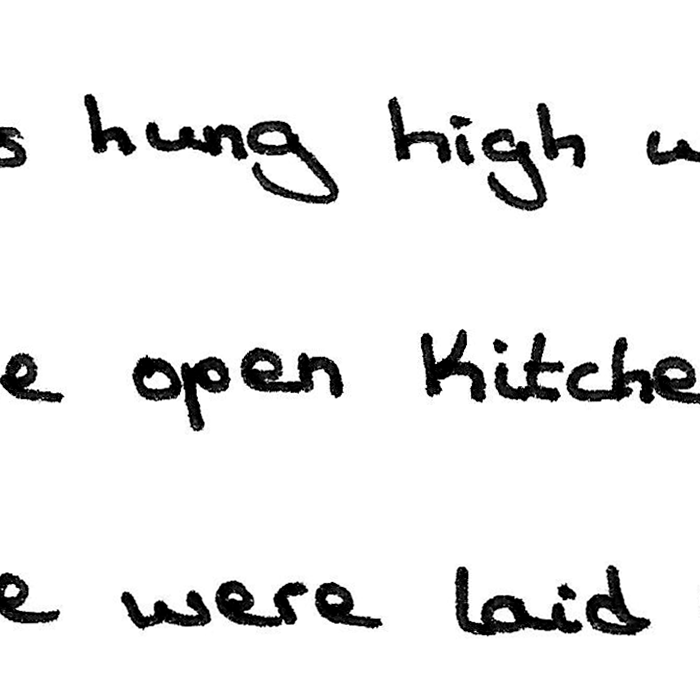 s hung high
e open Kitche
e were laid